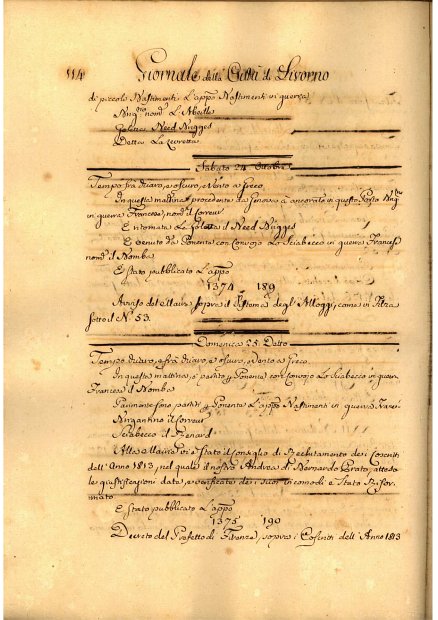 114 Giornale della Città di Livorno
di piccoli Bastimenti L'appo Bastimenti in guerra
Brigno nomo L'Abeille
Goletta Need Nugges
Detta La Levretta
Sabato 24 Ottobre
Tempo frà chiaro, e oscuro, e Vento a Greco
In questa mattina procedente da Genova è ancorato in questo Porto Brigno
in guerra Francese, nomo il Correur
È ritornata La Goletta il Need Nugges
È venuto da Ponente con Convojo Lo Sciabecco in guerra Francese
nomo il Bomba
È stato pubblicato L'appo
1374 189
Arresto del Maire sopra il Sistema degl'Alloggi, come in Filza
sotto il N.° 53.
Domenica 25 Detto
Tempo chiaro, e frà chiaro, e oscuro, e Vento a Greco.
In questa mattina, è partito p Ponente con Convojo Lo Sciabecco in guerra
Francese il Bomba
Parimente sono partiti p Ponente L'appo Bastimenti in guerra Francesi
Brigantino il Correur
Sciabecco il Renard
Alla Maire vi è stato il Consiglio di Reclutamento dei Coscritti
dell'Anno 1813, nel quale il nostro Andrea di Bernardo Prato, attesa
le giustificazioni date, e verificate dei suoi incomodi è stato Rifor
mato
È stato pubblicato L'appo
1375 190
Decreto del Prefetto di Firenze, sopra i Coscritti dell'Anno 1813